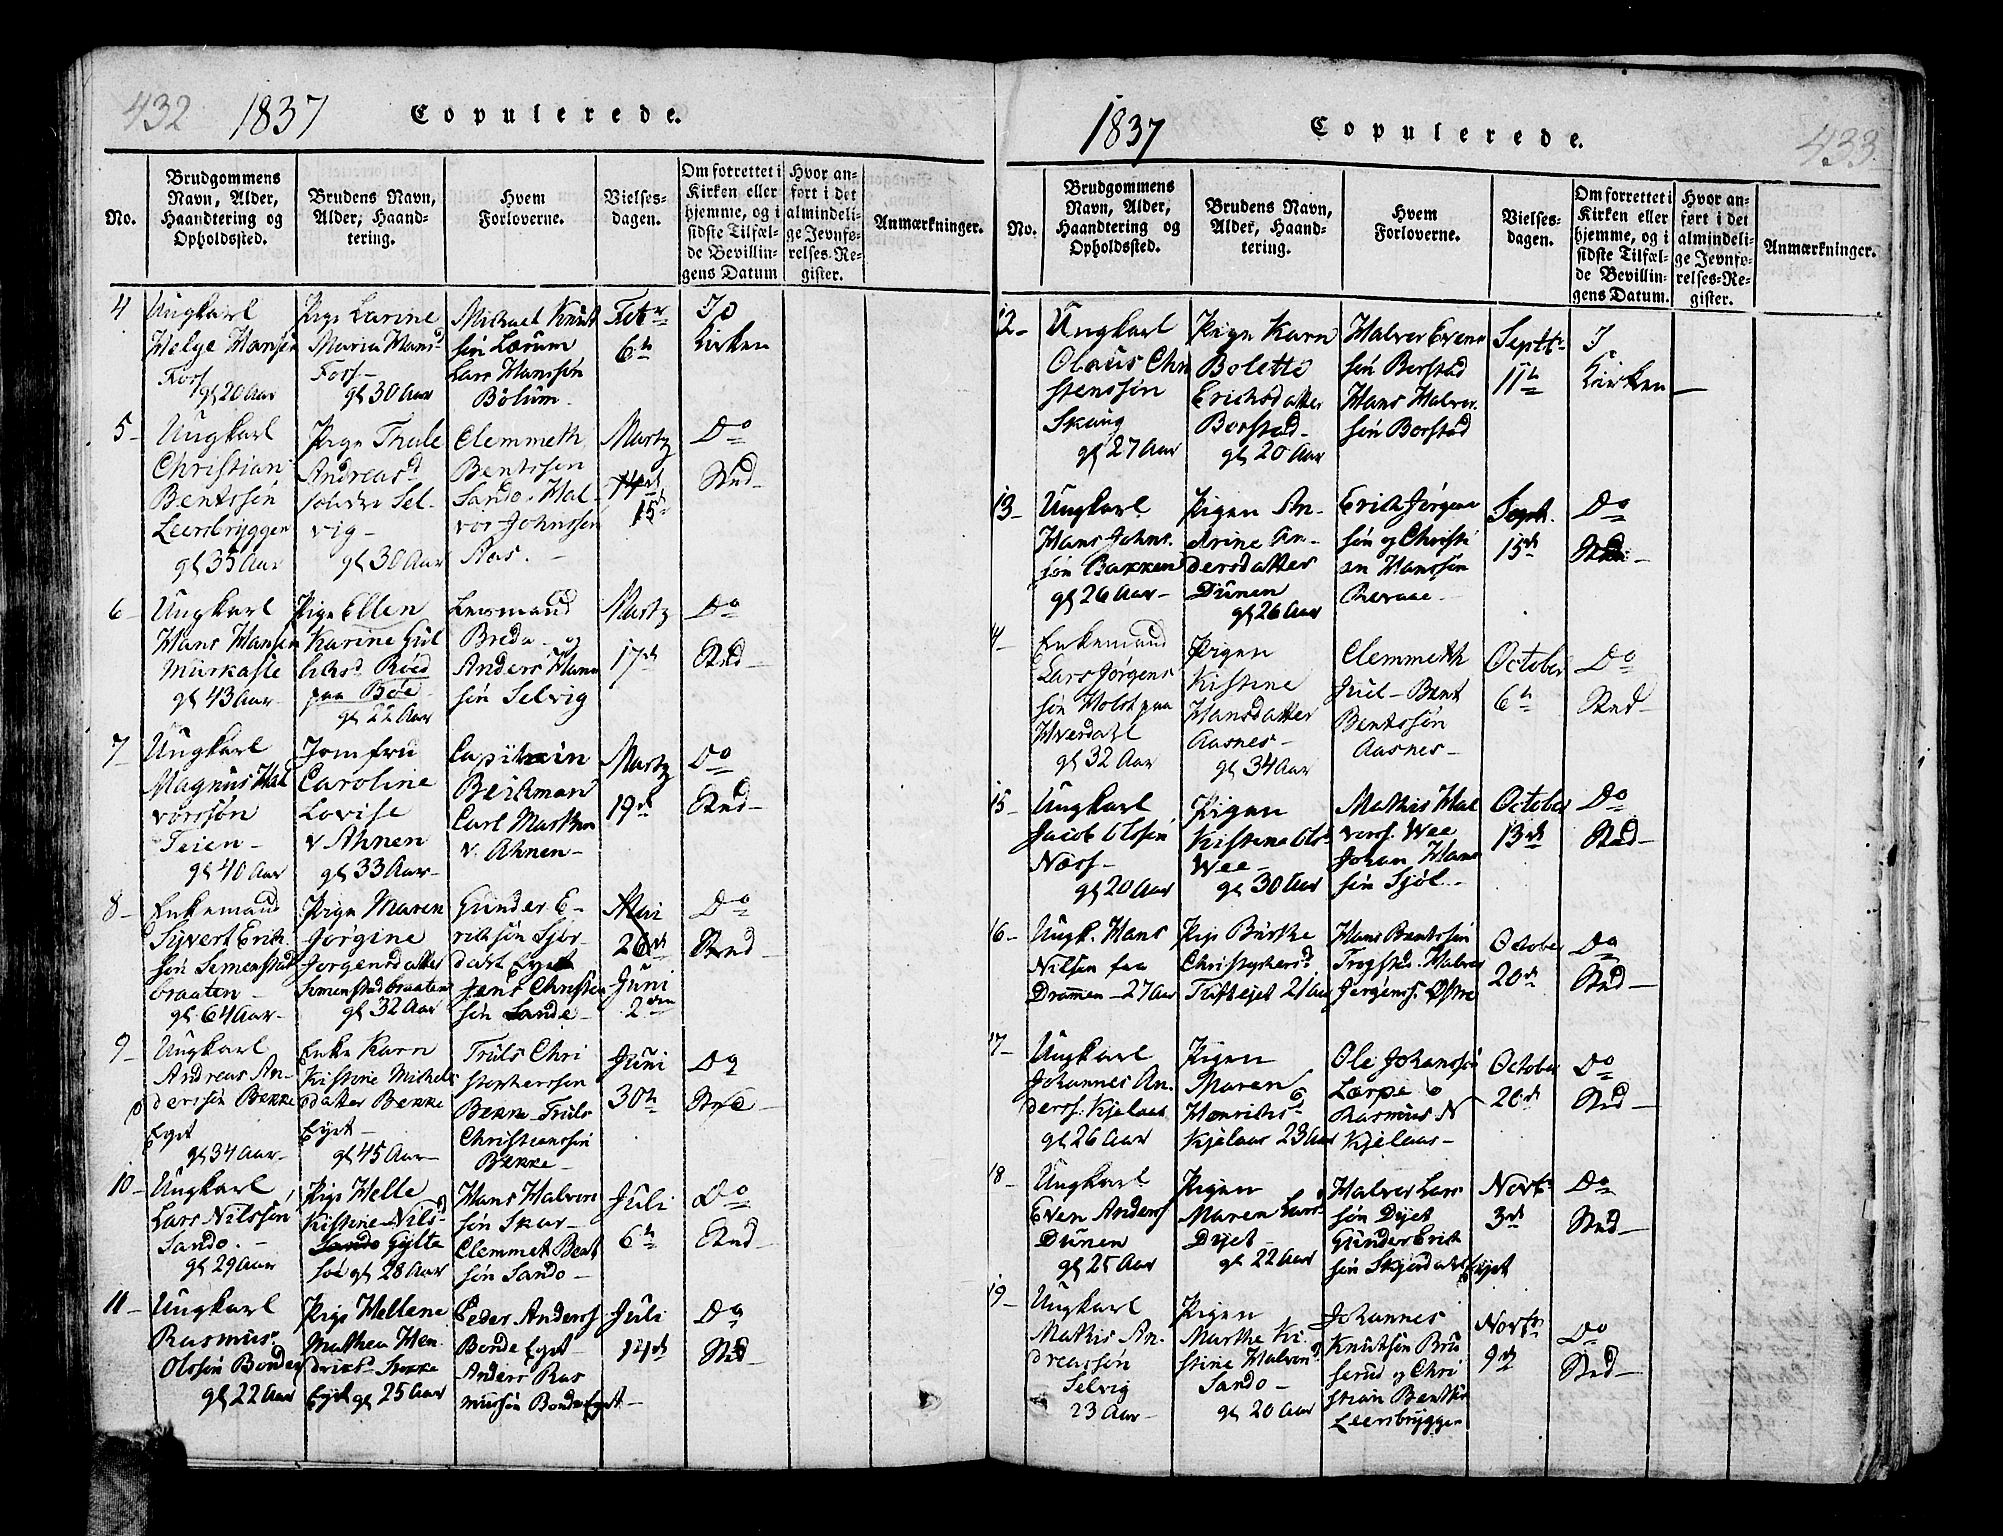 432 1837 Copulerede.
No.
Brudgommens
Navn, Alder,
Haandtering og
Opholdssted.
Brudens Navn,
Alder, Haand-
tering.
Hvem
Forloverne.
Vielses-
dagen.
Om forrettet i
Kirken eller
hjemme, og i
sidste Tilfæl-
de Bevillin-
gens Datum
Hvor an-
ført i det
almindeli-
ge Jevnfø-
relses-Re-
gister.
Anmærkninger.
4
Ungkarl
Helge Hansen
Fors
gl 20 Aar
Pige Larine
Maria Hansd
Fors-
gl 30 Aar
Michael Knut
sön Lærum
Lars Hanssön
Bölum.
Febr
6te
I
Kirken
5-
Ungkarl
Christian
Bentssön
Leersbryggen
gl 35 Aar
Pige Thale
Andreasd
söndre Sel-
vig-
gl 30 Aar
Clemmeth
Bentssön
Sando. Hal-
vor Johnssön
Aas.-
Martz
14de
15de
Do
Sted-
6-
Ungkarl
Hans Hansen
Murkaste
gl 43 Aar-
Pige Ellen
Karine Gul
licksd Röed
paa Böe-
gl 22 Aar
Lensmand
Breda- og
Anders Hans
sön Selvig
Martz
17de
Do
Sted-
7-
Ungkarl
Magnus Hal
vorssön
Teien-
gl 40 Aar
Jomfru
Caroline
Lovise
v Ahnen
gl 33 Aar-
Capitain
Beichman
Carl Marthin
v. Ahnen-
Martz
19de
Do
Sted-
8-
Enkemand
Syvert Erik-
sön Semenstad
braaten-
gl 64 Aar-
Pige Maren
Jörgine
Jörgensdatter
Semenstadbraaten
gl 32 Aar
Gunder E-
riksön Sjör-
dals Eget
Jens Christen
sön Sande-
Mai
26de
Juni
2den
Do
Sted-
9-
Ungkarl
Andreas An-
dersön Bekke
Eget
gl 34 Aar-
Enke Karn
Kistine Michels
datter Bekke
Eget-
gl 45 Aar-
Truls Chri
stophersön
Bekke- Truls
Christianssön
Bekke-
Juni
30te
Do
Sted-
10-
Ungkarl
Lars Nilssön
Sando.-
gl 29 Aar
Pige Helle
Kistine Nilsd
Sando Gylte
söe gl 28 Aar
Hans Halvor
sön Skar-
Clemmet Bent
sön Sando-
Juli
6te
Do
Sted-
11-
Ungkarl
Rasmus
Olssön Bonde
gl 22 Aar
Pige Hellene
Mathea Hen
driksd Bekke
Eget gl 25 Aar
Peder Anderss
Bonde Eget-
Anders Ras
mussön Bonde Eget-
Juli
14de
Do
Sted-
1837 Copulerede. 433.
No.
Brudgommens
Navn, Alder,
Haandtering og
Opholdssted.
Brudens Navn,
Alder, Haand-
tering.
Hvem
Forloverne.
Vielses-
dagen.
Om forrettet i
Kirken eller
hjemme, og i
sidste Tilfæl-
de Bevillin-
gens Datum.
Hvor an-
ført i det
almindeli-
ge Jevnfø-
relses-Re-
gister.
Anmærkninger.
12-
Ungkarl
Olaus Chri
stenssön
Skaug
gl 27 Aar
Pige Karn
Bolette
Erichsdatter
Borstad-
gl 20 Aar
Halver Evens
sön Borstad
Hans Halver
sön Borstad
Septbr
11te
I
Kirken-
13-
Ungkarl
Hans Johns
sön Bakken
gl 26 Aar-
Pigen An-
drine An-
dersdatter
Dunen
gl 26 Aar
Erich Jörgens
sön og Christi
an Hanssön
Revaae-
Sept.
15de
Do
Sted-
4-
Enkemand
Lars Jörgens
sön Holst paa
Hverdahl
gl 32 Aar
Pigen
Kistine
Hansdatter
Aasnes-
gl 34 Aar
Clemmeth
Juel- Bent
Bentssön
Aasnes-
October
6te
Do
Sted-
15-
Ungkarl
Jacob Olssön
Næss-
gl 20 Aar
Pigen
Kistine Ols
Wee-
gl 30 Aar
Mathis Hal
vorss. Wee
Johan Hans
sön Sjöl-
October
13de
Do
Sted-
16-
Ungk. Hans
Nilsen fra
Dramen-27 Aar
Pige Birthe
Christophersd
Tufteejet 21 Aar
Hans Bentssön
Trogstad. Halver
Jörgenss. Östre
October
20de
Do
Sted-
17-
Ungkarl
Johannes An-
derss. Kjelaas
gl 26 Aar
Pigen
Maren
Henriksd
Kjelaas 23 Aar
Ole Johanssön
Lærpe o
Rasmus N
Kjelaas-
October
20de
Do
Sted-
18-
Ungkarl
Even Anders
Dunen
gl 25 Aar
Pigen
Maren Larsd
Dyet-
gl 22 Aar
Halver Lars
sön Dyet
Gunder Erik
sön Skjördals Ejet
Novbr
3de
Do
Sted-
19-
Ungkarl
Mathis An-
dreassön
Selvig
23 Aar-
Pigen
Marthe Ki-
stine Halvorsd
Sando-
gl 20 Aar
Johannes
Knutsön Bru
serud og Chri
stian Bentsön
Leersbryggen
Novbr
9de
Do
Sted-